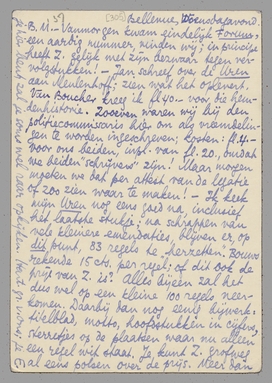 Bellevue, Woensdagavond.
B.M. – Vanmorgen kwam eindelijk Forum,
een aardig nummer, vinden wij; in principe
heeft Z. gelijk met zijn bezwaar tegen ver-
volgstukken! – Jan schreef over de Uren
aan Meulenhoff; zien wat het oplevert.
Van Boucher kreeg ik fl. 40.– voor die heu-
denhistorie. Zooeven waren wij bij den
politiecommissaris hier om als vreemdelin-
gen te worden ingeschreven; kosten: fl. 4.–
voor ons beiden, inpl. van fl. 20., omdat
we beiden "schrijvers" zijn! Maar morgen
moeten we dat per attest van de legatie
of zoo zien waar te maken! – Ik keek
mijn Uren nog eens goed na, inclusief
het laatste stukje; na schrappen van
vele kleinere emendaties, blijven er, op
dit punt, 83 regels te herzetten. Bouws
rekende 15 cts. per regel; of dit ook de
prijs van Z. is? Alles bijeen zal het
dus wel op een kleine 100 regels neer-
komen. Daarbij dan nog eenig bijwerk:
titelblad, motto, hoofdstukken in cijfers,
sterretjes op de plaatsen waar nu alleen
een regel wit staat. Je kunt Z. grofweg
al eens polsen over de prijs. Meer dan